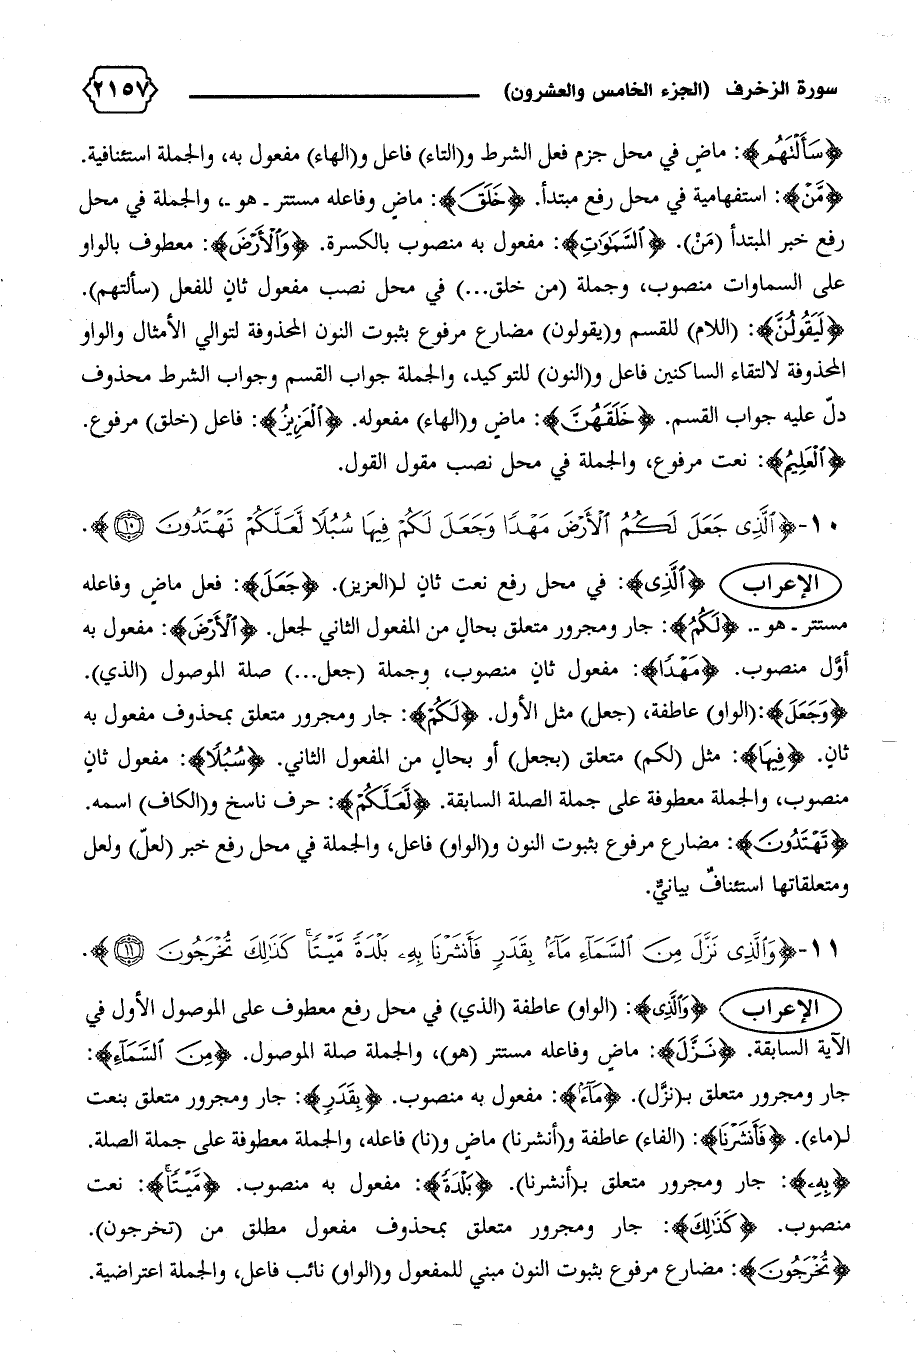 سورة الزخرف (الجزء الخامس والعشرون) ٢١٥٧
﴿سَأَلْتَهُم﴾: ماضٍ في محل جزم فعل الشرط و(التاء) فاعل و(الهاء) مفعول به، والجملة استئنافية.
﴿مَّنْ﴾: استفهامية في محل رفع مبتدأ. ﴿خَلَقَ﴾: ماضٍ وفاعله مستتر ـ هو ـ، والجملة في محل
رفع خبر المبتدأ (مَنْ). ﴿ٱلسَّمَٰوَٰتِ﴾: مفعول به منصوب بالكسرة. ﴿وَٱلْأَرْضَ﴾: معطوف بالواو
على السماوات منصوب، وجملة (من خلق...) في محل نصب مفعول ثانٍ للفعل (سألتهم).
﴿لَيَقُولُنَّ﴾: (اللام) للقسم و(يقولون) مضارع مرفوع بثبوت النون المحذوفة لتوالي الأمثال والواو
المحذوفة لالتقاء الساكنين فاعل و(النون) للتوكيد، والجملة جواب القسم وجواب الشرط محذوف
دلّ عليه جواب القسم. ﴿خَلَقَهُنَّ﴾: ماضٍ و(الهاء) مفعوله. ﴿ٱلْعَزِيزُ﴾: فاعل (خلق) مرفوع.
﴿ٱلْعَلِيمُ﴾: نعت مرفوع، والجملة في محل نصب مقول القول.
١٠-﴿ٱلَّذِى جَعَلَ لَكُمُ ٱلْأَرْضَ مَهْدًا وَجَعَلَ لَكُمْ فِيهَا سُبُلًا لَّعَلَّكُمْ تَهْتَدُونَ ١٠﴾.
الإعراب ﴿ٱلَّذِى﴾: في محل رفع نعت ثانٍ لـ(العزيز). ﴿جَعَلَ﴾: فعل ماضٍ وفاعله
مستتر ـ هو ـ. ﴿لَكُمُ﴾: جار ومجرور متعلق بحالٍ من المفعول الثاني لجعل. ﴿ٱلْأَرْضَ﴾: مفعول به
أوَّل منصوب. ﴿مَهْدًا﴾: مفعول ثانٍ منصوب، وجملة (جعل...) صلة الموصول (الذي).
﴿وَجَعَلَ﴾:(الواو) عاطفة، (جعل) مثل الأول. ﴿لَكُمْ﴾: جار ومجرور متعلق بمحذوف مفعول به
ثانٍ. ﴿فِيهَا﴾: مثل (لكم) متعلق (بجعل) أو بحالٍ من المفعول الثاني. ﴿سُبُلًا﴾: مفعول ثانٍ
منصوب، والجملة معطوفة على جملة الصلة السابقة. ﴿لَّعَلَّكُمْ﴾: حرف ناسخ و(الكاف) اسمه.
﴿تَهْتَدُونَ﴾: مضارع مرفوع بثبوت النون و(الواو) فاعل، والجملة في محل رفع خبر (لعلّ) ولعل
ومتعلقاتها استئنافٌ بيانيٌّ.
١١-﴿وَٱلَّذِى نَزَّلَ مِنَ ٱلسَّمَآءِ مَآءًۢ بِقَدَرٍ فَأَنشَرْنَا بِهِۦ بَلْدَةً مَّيْتًا ۚ كَذَٰلِكَ تُخْرَجُونَ ١١﴾.
الإعراب ﴿وَٱلَّذِى﴾: (الواو) عاطفة (الذي) في محل رفع معطوف على الموصول الأول في
الآية السابقة. ﴿نَزَّلَ﴾: ماضٍ وفاعله مستتر (هو)، والجملة صلة الموصول. ﴿مِنَ ٱلسَّمَآءِ﴾:
جار ومجرور متعلق بـ(نزَّل). ﴿مَآءًۢ﴾: مفعول به منصوب. ﴿بِقَدَرٍ﴾: جار ومجرور متعلق بنعت
لـ(ماء). ﴿فَأَنشَرْنَا﴾: (الفاء) عاطفة و(أنشرنا) ماضٍ و(نا) فاعله، والجملة معطوفة على جملة الصلة.
﴿بِهِۦ﴾: جار ومجرور متعلق بـ(أنشرنا). ﴿بَلْدَةً﴾: مفعول به منصوب. ﴿مَّيْتًا ۚ﴾: نعت
منصوب. ﴿كَذَٰلِكَ﴾: جار ومجرور متعلق بمحذوف مفعول مطلق من (تخرجون).
﴿تُخْرَجُونَ﴾: مضارع مرفوع بثبوت النون مبني للمفعول و(الواو) نائب فاعل، والجملة اعتراضية.